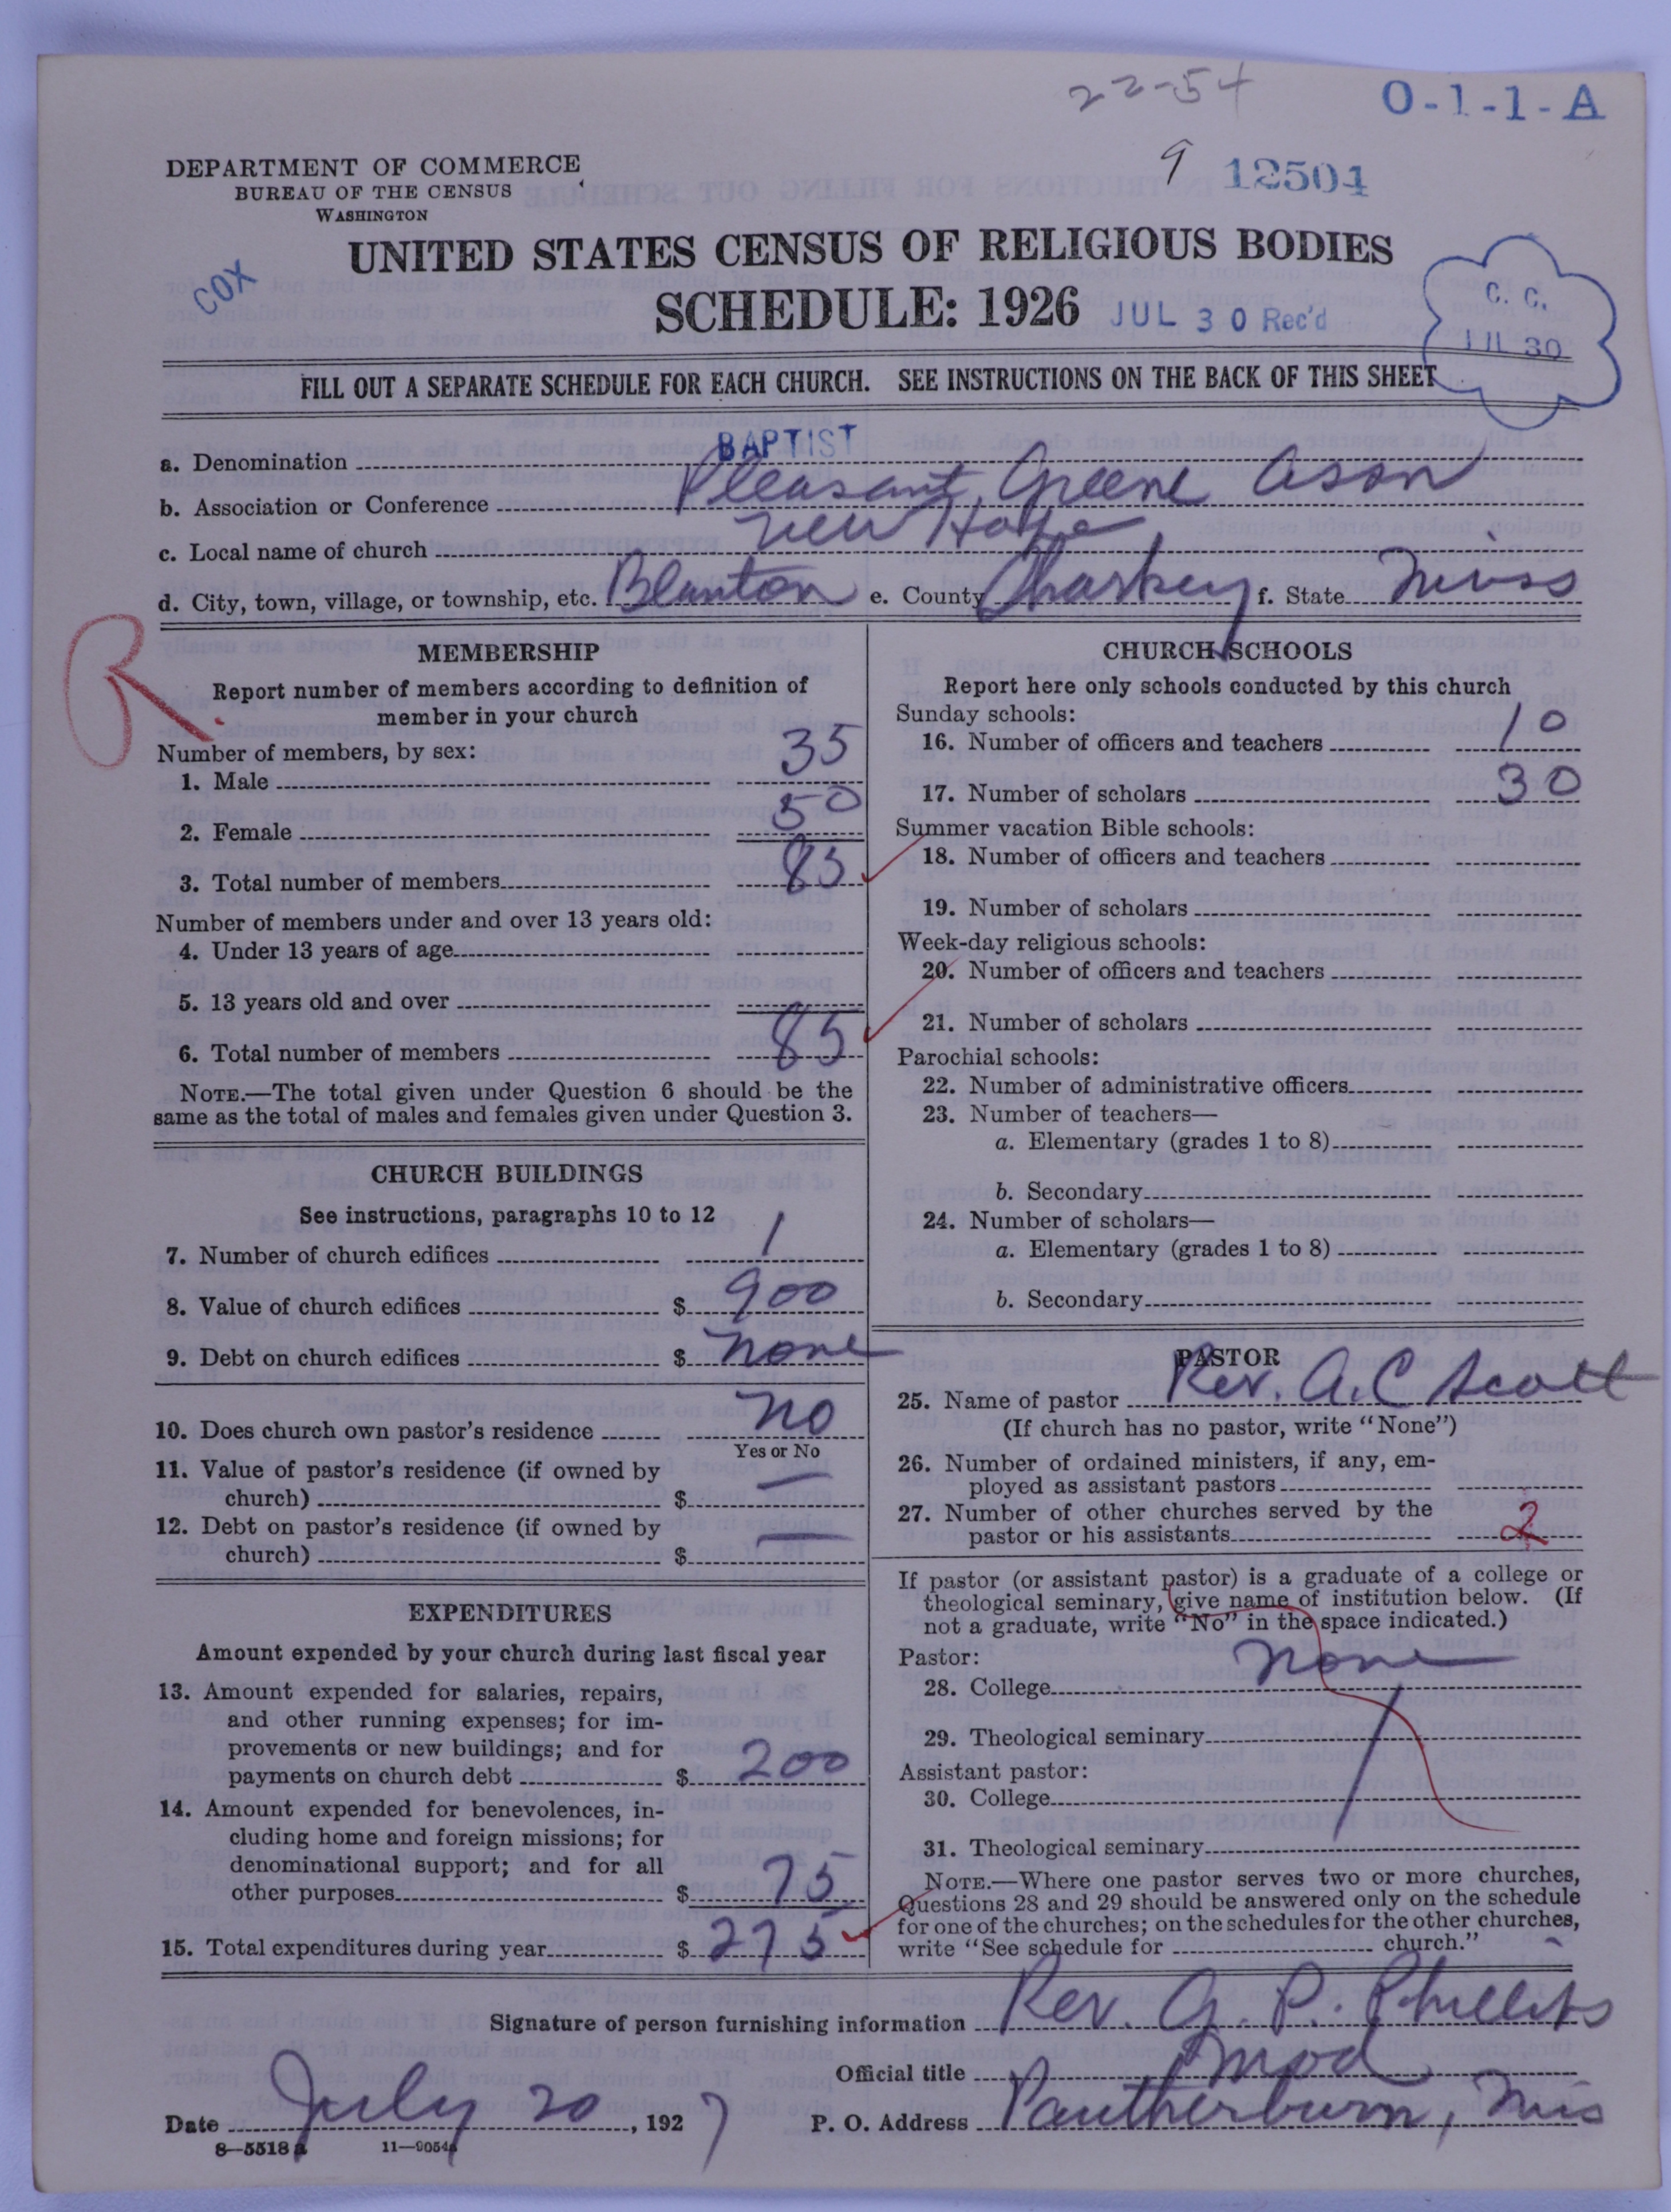 22-54
O-1-1-A
9 12504
DEPARTMENT OF COMMERCE
BUREAU OF THE CENSUS
WASHINGTON
COX
UNITED STATES CENSUS OF RELIGIOUS BODIES
SCHEDULE: 1926 JUL 30 Rec'd
C. C.
JUL 30
FILL OUT A SEPARATE SCHEDULE FOR EACH CHURCH. SEE INSTRUCTIONS ON THE BACK OF THIS SHEET
a. Denomination BAPTIST
b. Association or Conference Pleasant Greene Assn
c. Local name of church New Hope
d. City, town, village, or township, etc. Blanton e. County Sharkey f. State Miss
R.
MEMBERSHIP
Report number of members according to definition of
member in your church
Number of members, by sex:
1. Male 35
2. Female 50
3. Total number of members 85
Number of members under and over 13 years old:
4. Under 13 years of age
5. 13 years old and over
6. Total number of members 85
NOTE.—The total given under Question 6 should be the
same as the total of males and females given under Question 3.
CHURCH BUILDINGS
See instructions, paragraphs 10 to 12
7. Number of church edifices 1
8. Value of church edifices $ 900
9. Debt on church edifices $ none
10. Does church own pastor's residence no
Yes or No
11. Value of pastor's residence (if owned by
church) $ —
12. Debt on pastor's residence (if owned by
church) $ —
EXPENDITURES
Amount expended by your church during last fiscal year
13. Amount expended for salaries, repairs,
and other running expenses; for im-
provements or new buildings; and for
payments on church debt $ 200
14. Amount expended for benevolences, in-
cluding home and foreign missions; for
denominational support; and for all
other purposes $ 75
15. Total expenditures during year $ 275
CHURCH SCHOOLS
Report here only schools conducted by this church
Sunday schools:
16. Number of officers and teachers 10
17. Number of scholars 30
Summer vacation Bible schools:
18. Number of officers and teachers
19. Number of scholars
Week-day religious schools:
20. Number of officers and teachers
21. Number of scholars
Parochial schools:
22. Number of administrative officers
23. Number of teachers—
a. Elementary (grades 1 to 8)
b. Secondary
24. Number of scholars—
a. Elementary (grades 1 to 8)
b. Secondary
PASTOR
25. Name of pastor Rev. A. C Scott
(If church has no pastor, write "None")
26. Number of ordained ministers, if any, em-
ployed as assistant pastors
27. Number of other churches served by the
pastor or his assistants 2
If pastor (or assistant pastor) is a graduate of a college or
theological seminary, give name of institution below. (If
not a graduate, write "No" in the space indicated.)
Pastor:
28. College none
29. Theological seminary
Assistant pastor:
30. College
31. Theological seminary
NOTE.—Where one pastor serves two or more churches,
Questions 28 and 29 should be answered only on the schedule
for one of the churches; on the schedules for the other churches,
write "See schedule for church."
Signature of person furnishing information Rev. G. P. Phillips
Official title Mod
Date July 20, 1927 P. O. Address Pantherburn, Mis
8—5518 a 11—9054